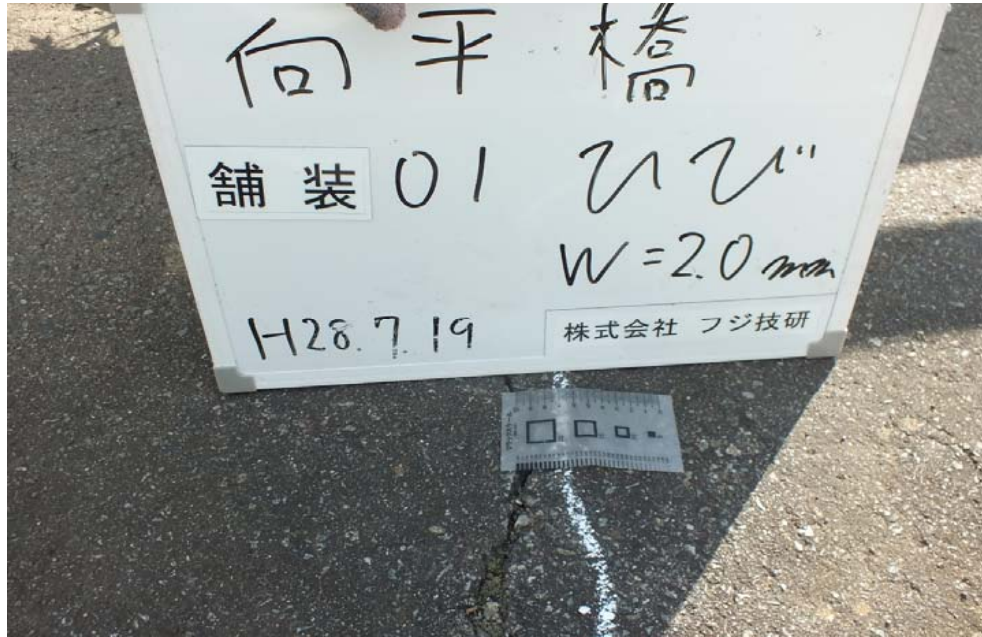 向平橋
舗装 01 ひび
W=2.0mm
H28.7.19
株式会社 フジ技研